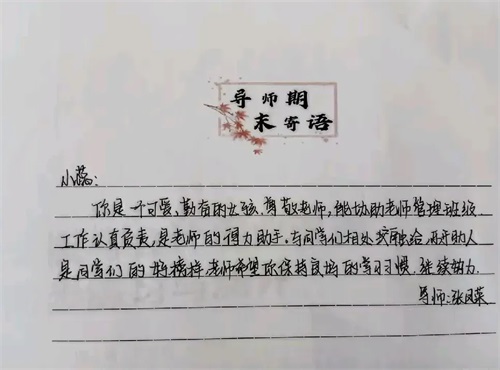 导师期
末寄语
小蕊:
你是一个可爱、勤奋的女孩,尊敬老师,能协助老师管理班级
工作认真负责,是老师的得力助手。与同学们相处融洽,助人
是同学们的好榜样,老师希望你保持良好的学习习惯,继续努力.
导师:张凤荣